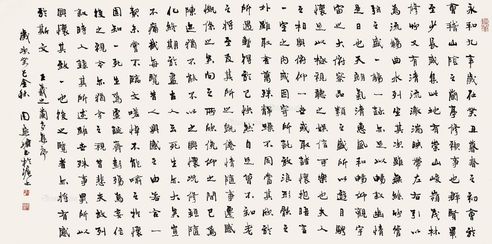 永和九年歲在癸丑暮春之初會於
會稽山陰之蘭亭脩禊事也群賢畢
至少長咸集此地有崇山峻嶺茂林
脩竹又有清流激湍暎帶左右引以
為流觴曲水列坐其次雖無絲竹管
弦之盛一觴一詠亦足以暢敘幽情
是日也天朗氣清惠風和暢仰觀宇
宙之大俯察品類之盛所以遊目騁
懷足以極視聽之娛信可樂也夫人
之相與俯仰一世或取諸懷抱悟言
一室之內或因寄所託放浪形骸之
外雖趣舍萬殊靜躁不同當其欣
於所遇暫得於己快然自足不知老之
將至及其所之既倦情隨事遷感
慨係之矣向之所欣俛仰之間已為
陳迹猶不能不以之興懷況脩短隨
化終期於盡古人云死生亦大矣豈
不痛哉每攬昔人興感之由若合一
契未嘗不臨文嗟悼不能喻之於懷
固知一死生為虛誕齊彭殤為妄作
後之視今亦猶今之視昔悲夫故列
敘時人錄其所述雖世殊事異所以
興懷其致一也後之覽者亦將有感
於斯文 王羲之蘭亭集序
歲次癸巳金秋 周